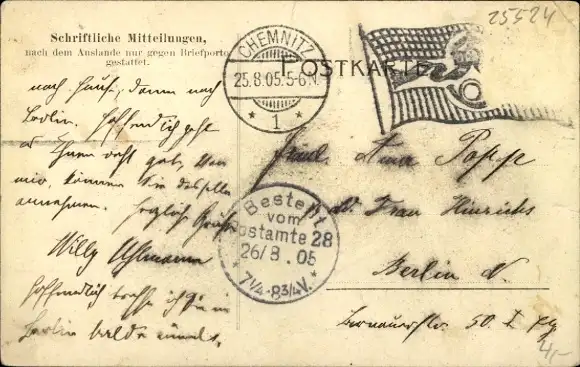 25524
Schriftliche Mitteilungen,
nach dem Auslande nur gegen Briefporto
gestattet.
POSTKARTE
CHEMNITZ
25.8.05.5-6.N.
* 1 *
nach Hause, dann nach
Berlin. Hoffentlich geht
es Ihnen recht gut, von
mir können Sie dasselbe
annehmen. Herzliche Grüße
Willy Uhlmann
Hoffentlich treffe ich Sie in
Berlin bald einmal.
Bestellt
vom
Postamte 28
26/8.05
* 7¼-8¾V. *
Fräul. Anna Popp
Frau Hinrichs
Berlin N.
Bernauerstr. 50. I
4,-